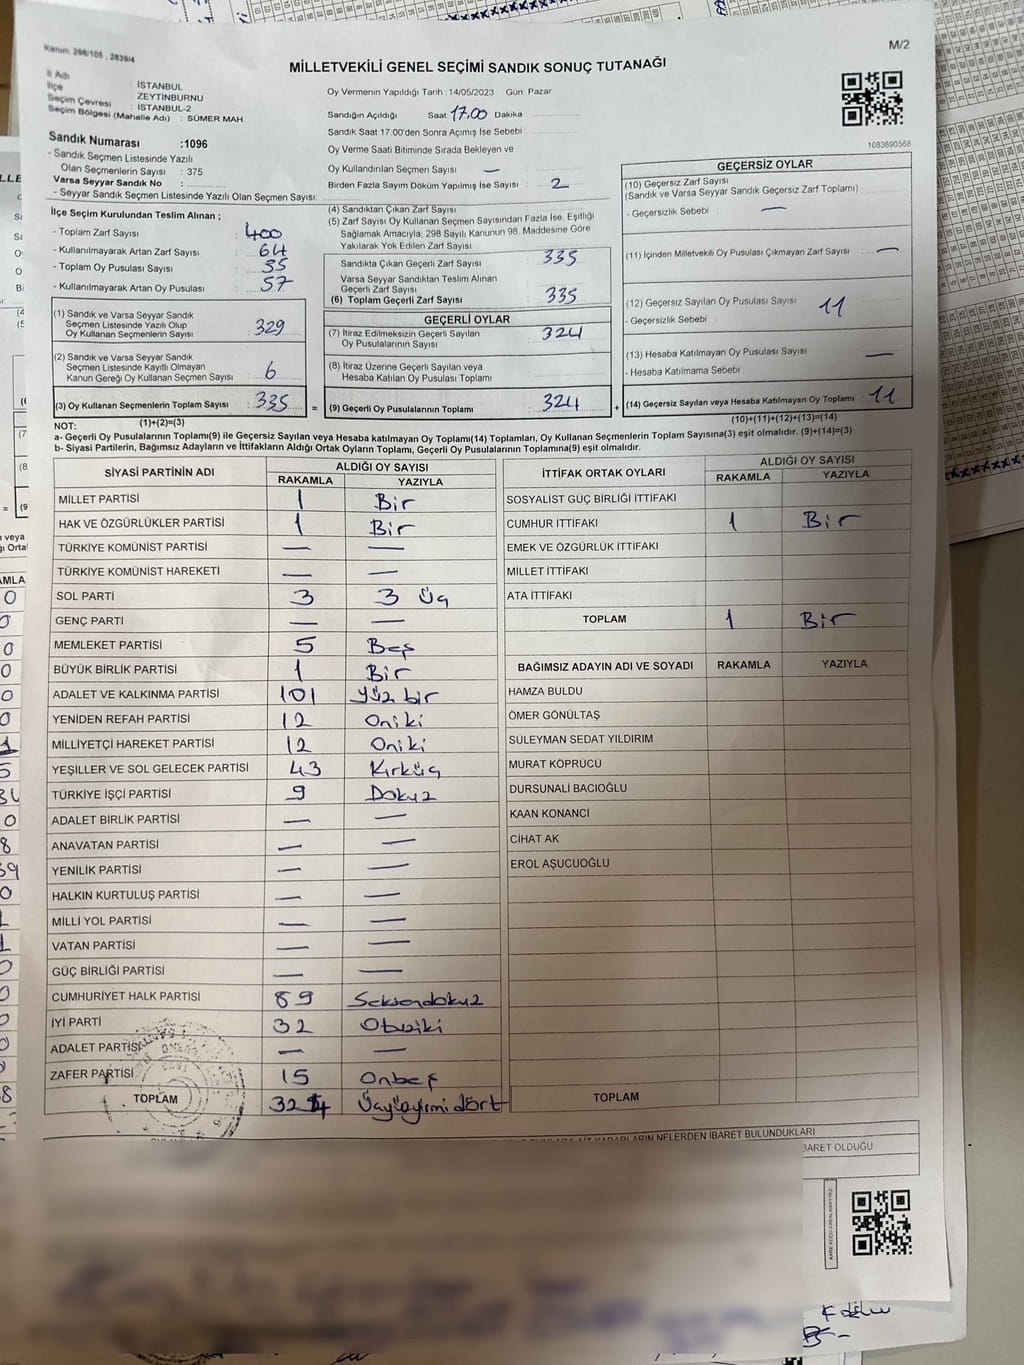 Kanun, 298/105 , 2839/4
M/2
MİLLETVEKİLİ GENEL SEÇİMİ SANDIK SONUÇ TUTANAĞI
İl Adı : İSTANBUL
İlçe : ZEYTİNBURNU
Seçim Çevresi : İSTANBUL-2
Seçim Bölgesi (Mahalle Adı) : SÜMER MAH.
Sandık Numarası :1096
- Sandık Seçmen Listesinde Yazılı
Olan Seçmenlerin Sayısı : 375
Varsa Seyyar Sandık No :
- Seyyar Sandık Seçmen Listesinde Yazılı Olan Seçmen Sayısı:
Oy Vermenin Yapıldığı Tarih :14/05/2023 Gün Pazar
Sandığın Açıldığı Saat 17.00 Dakika
Sandık Saat 17:00'den Sonra Açımış İse Sebebi :
Oy Verme Saati Bitiminde Sırada Bekleyen ve
Oy Kullandırılan Seçmen Sayısı : —
Birden Fazla Sayım Döküm Yapılmış İse Sayısı : 2
1083690568
İlçe Seçim Kurulundan Teslim Alınan ;
- Toplam Zarf Sayısı : 400
- Kullanılmayarak Artan Zarf Sayısı : 64
- Toplam Oy Pusulası Sayısı :
- Kullanılmayarak Artan Oy Pusulası : 57
(1) Sandık ve Varsa Seyyar Sandık
Seçmen Listesinde Yazılı Olup
Oy Kullanan Seçmenlerin Sayısı : 329
(2) Sandık ve Varsa Seyyar Sandık
Seçmen Listesinde Kayıtlı Olmayan
Kanun Gereği Oy Kullanan Seçmen Sayısı : 6
(3) Oy Kullanan Seçmenlerin Toplam Sayısı : 335 =
(1)+(2)=(3)
(4) Sandıktan Çıkan Zarf Sayısı
(5) Zarf Sayısı Oy Kullanan Seçmen Sayısından Fazla İse, Eşitliği
Sağlamak Amacıyla, 298 Sayılı Kanunun 98. Maddesine Göre
Yakılarak Yok Edilen Zarf Sayısı :
Sandıkta Çıkan Geçerli Zarf Sayısı : 335
Varsa Seyyar Sandıktan Teslim Alınan
Geçerli Zarf Sayısı :
(6) Toplam Geçerli Zarf Sayısı : 335
GEÇERLİ OYLAR
(7) İtiraz Edilmeksizin Geçerli Sayılan
Oy Pusulalarının Sayısı : 324
(8) İtiraz Üzerine Geçerli Sayılan veya
Hesaba Katılan Oy Pusulası Toplamı :
(9) Geçerli Oy Pusulalarının Toplamı : 324 +
GEÇERSİZ OYLAR
(10) Geçersiz Zarf Sayısı
(Sandık ve Varsa Seyyar Sandık Geçersiz Zarf Toplamı) :
- Geçersizlik Sebebi : —
(11) İçinden Milletvekili Oy Pusulası Çıkmayan Zarf Sayısı : —
(12) Geçersiz Sayılan Oy Pusulası Sayısı : 11
- Geçersizlik Sebebi :
(13) Hesaba Katılmayan Oy Pusulası Sayısı : —
- Hesaba Katılmama Sebebi :
(14) Geçersiz Sayılan veya Hesaba Katılmayan Oy Toplamı : 11
(10)+(11)+(12)+(13)=(14)
NOT:
a- Geçerli Oy Pusulalarının Toplamı(9) ile Geçersiz Sayılan veya Hesaba katılmayan Oy Toplamı(14) Toplamları, Oy Kullanan Seçmenlerin Toplam Sayısına(3) eşit olmalıdır. (9)+(14)=(3)
b- Siyasi Partilerin, Bağımsız Adayların ve İttifakların Aldığı Ortak Oyların Toplamı, Geçerli Oy Pusulalarının Toplamına(9) eşit olmalıdır.
SİYASİ PARTİNİN ADI ALDIĞI OY SAYISI
RAKAMLA YAZIYLA
MİLLET PARTİSİ 1 Bir
HAK VE ÖZGÜRLÜKLER PARTİSİ 1 Bir
TÜRKİYE KOMÜNİST PARTİSİ — —
TÜRKİYE KOMÜNİST HAREKETİ — —
SOL PARTİ 3 3 Üç
GENÇ PARTİ — —
MEMLEKET PARTİSİ 5 Beş
BÜYÜK BİRLİK PARTİSİ 1 Bir
ADALET VE KALKINMA PARTİSİ 101 Yüz bir
YENİDEN REFAH PARTİSİ 12 Oniki
MİLLİYETÇİ HAREKET PARTİSİ 12 Oniki
YEŞİLLER VE SOL GELECEK PARTİSİ 43 Kırküç
TÜRKİYE İŞÇİ PARTİSİ 9 Dokuz
ADALET BİRLİK PARTİSİ — —
ANAVATAN PARTİSİ — —
YENİLİK PARTİSİ — —
HALKIN KURTULUŞ PARTİSİ — —
MİLLİ YOL PARTİSİ — —
VATAN PARTİSİ — —
GÜÇ BİRLİĞİ PARTİSİ — —
CUMHURİYET HALK PARTİSİ 89 Seksendokuz
İYİ PARTİ 32 Otuziki
ADALET PARTİSİ — —
ZAFER PARTİSİ 15 Onbeş
TOPLAM 324 Üçyüzyirmi dört
İTTİFAK ORTAK OYLARI ALDIĞI OY SAYISI
RAKAMLA YAZIYLA
SOSYALİST GÜÇ BİRLİĞİ İTTİFAKI
CUMHUR İTTİFAKI 1 Bir
EMEK VE ÖZGÜRLÜK İTTİFAKI
MİLLET İTTİFAKI
ATA İTTİFAKI
TOPLAM 1 Bir
BAĞIMSIZ ADAYIN ADI VE SOYADI RAKAMLA YAZIYLA
HAMZA BULDU
ÖMER GÖNÜLTAŞ
SÜLEYMAN SEDAT YILDIRIM
MURAT KÖPRÜCÜ
DURSUNALİ BACIOĞLU
KAAN KONANCİ
CİHAT AK
EROL AŞUCUOĞLU
TOPLAM
NELERDEN İBARET BULUNDUKLARI
BARET OLDUĞU